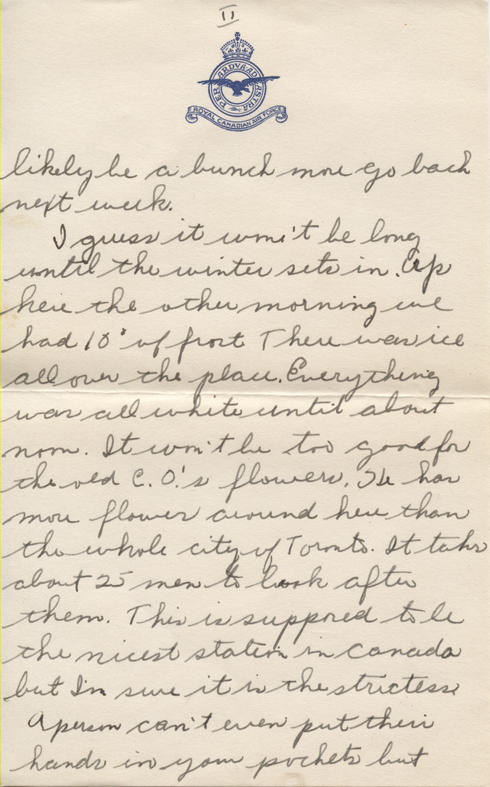 II
PER ARDUA AD ASTRA
ROYAL CANADIAN AIR FORCE
likely be a bunch more go back
next week.
I guess it won't be long
until the winter sets in. Up
here the other morning we
had 10° of frost There was ice
all over the place. Everything
was all white until about
noon. It won't be too good for
the old C.O.'s flowers. He has
more flower around here than
the whole city of Toronto. It takes
about 25 men to look after
them. This is suppored to be
the nicest station in Canada
but I'm sure it is the strictess
A person can't even put their
hands in your pockets but